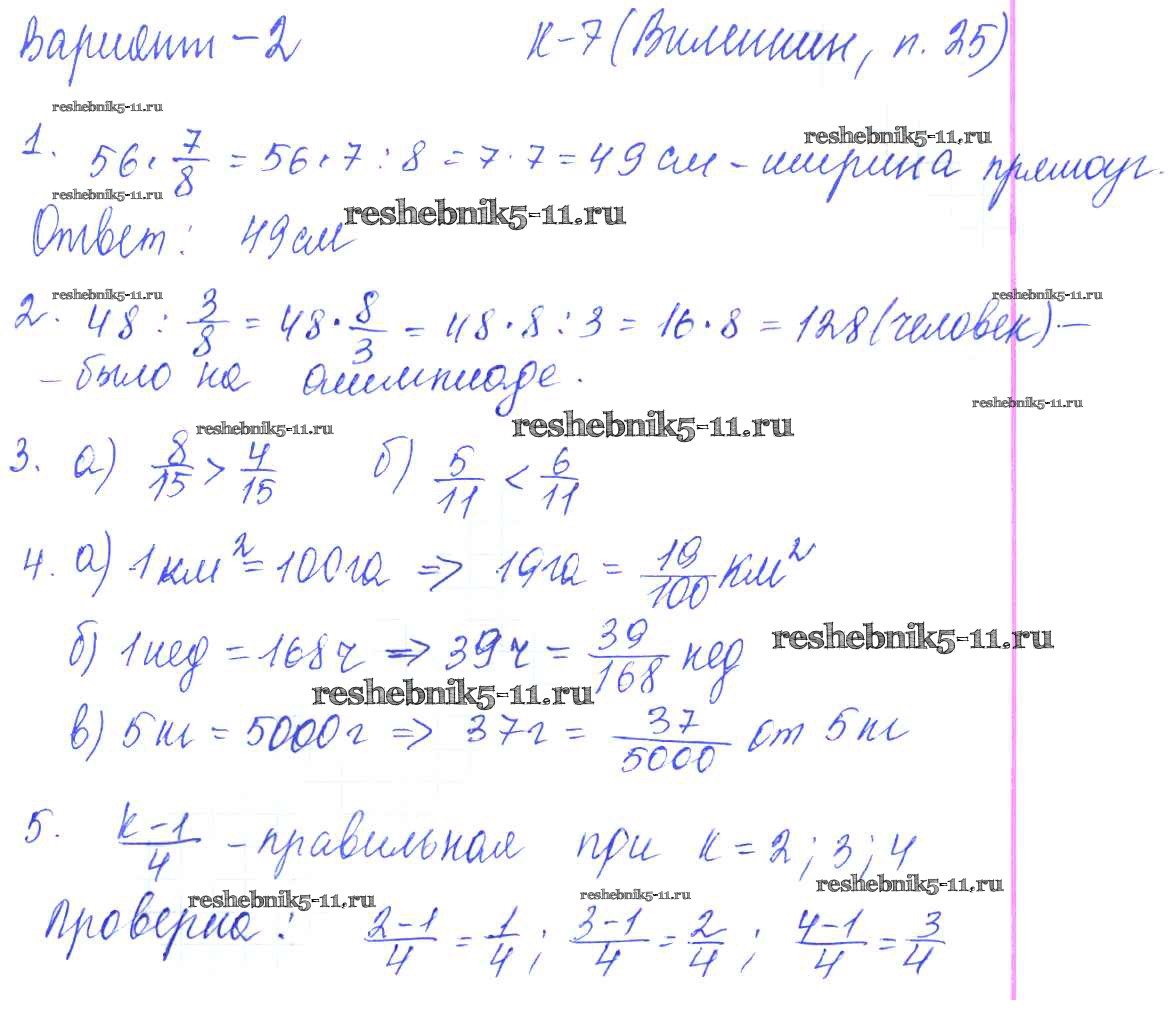 Вариант – 2 К-7 (Виленкин, п. 25)
reshebnik5-11.ru
reshebnik5-11.ru
1. 56 · 7/8 = 56 · 7 : 8 = 7 · 7 = 49 см – ширина прямоуг.
reshebnik5-11.ru
reshebnik5-11.ru
Ответ: 49 см
reshebnik5-11.ru
reshebnik5-11.ru
2. 48 : 3/8 = 48 · 8/3 = 48 · 8 : 3 = 16 · 8 = 128 (человек) –
– было на олимпиаде.
reshebnik5-11.ru
reshebnik5-11.ru
reshebnik5-11.ru
3. а) 8/15 > 4/15 б) 5/11 < 6/11
4. а) 1 км² = 100 га => 19 га = 19/100 км²
б) 1 нед = 168 ч => 39 ч = 39/168 нед
reshebnik5-11.ru
reshebnik5-11.ru
в) 5 кг = 5000 г => 37 г = 37/5000 от 5 кг
5. k-1/4 – правильная при k = 2; 3; 4
reshebnik5-11.ru
reshebnik5-11.ru
reshebnik5-11.ru
Проверка: 2-1/4 = 1/4; 3-1/4 = 2/4; 4-1/4 = 3/4